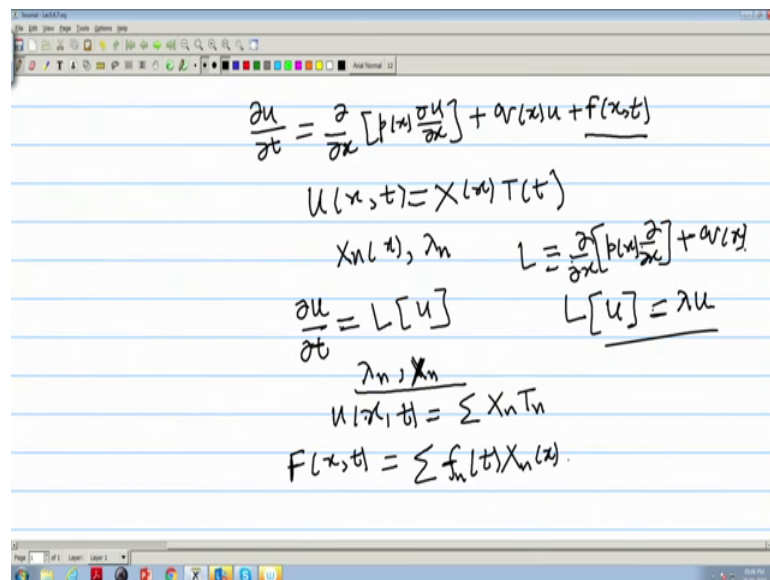 Journal - Lec5,6,7.xoj
File Edit View Page Tools Options Help
Arial Normal 12
∂u/∂t = ∂/∂x [p(x) ∂u/∂x] + q(x)u + f(x,t)
u(x,t) = X(x) T(t)
Xn(x), λn L ≡ ∂/∂x [p(x) ∂/∂x] + q(x).
∂u/∂t = L[u] L[u] = λu
λn, Xn
u(x,t) = Σ Xn Tn
F(x,t) = Σ fn(t) Xn(x).
Page 1 of 1 Layer: Layer 1